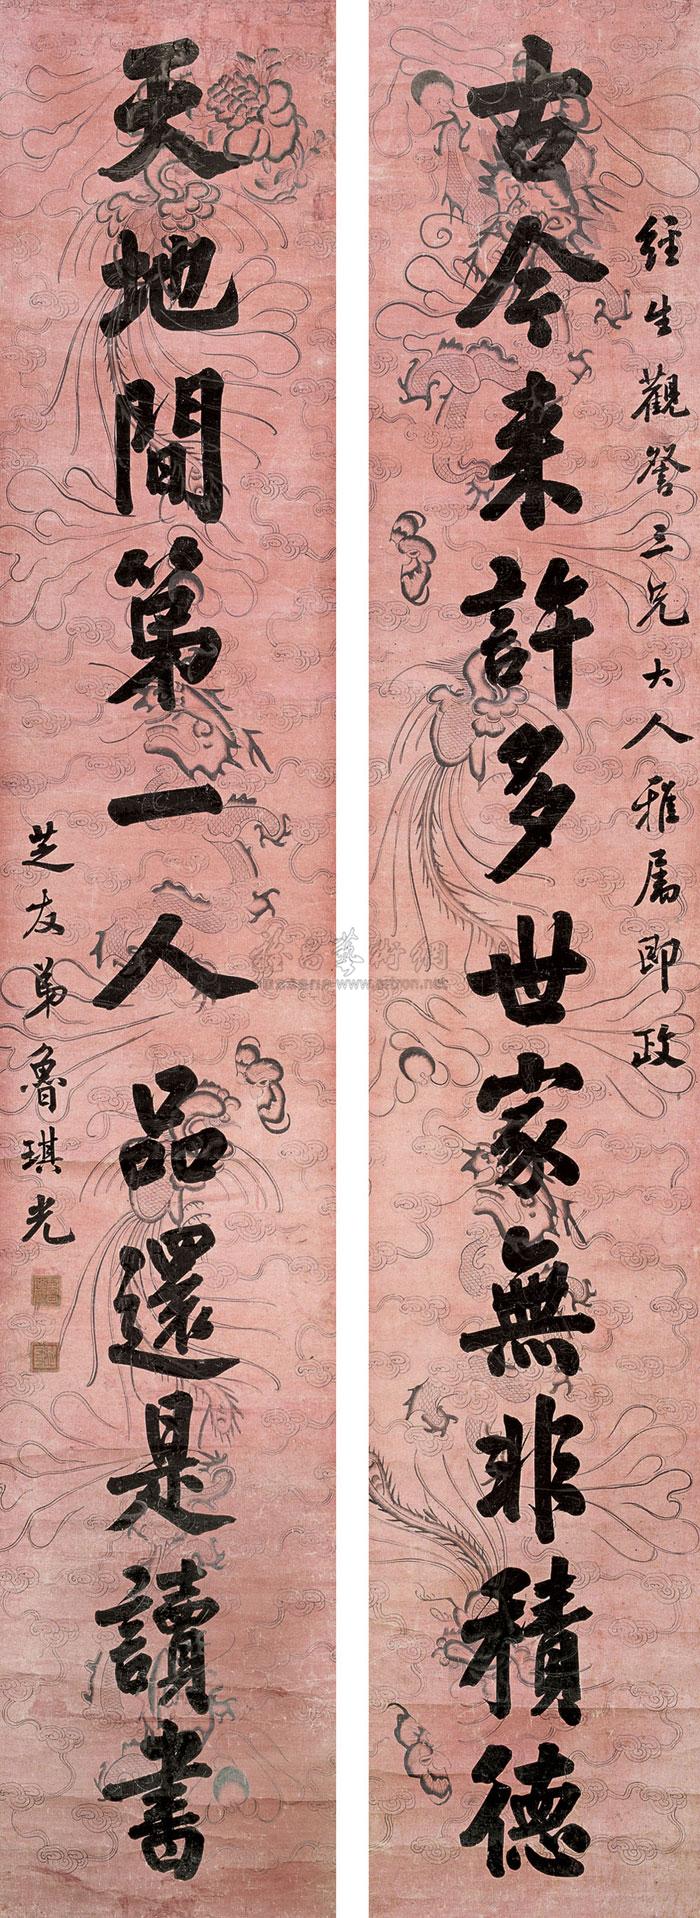 經生觀詧三兄大人雅屬即政
古今来許多世家無非積德
天地間第一人品還是讀書
芝友弟魯琪光
www.artron.net